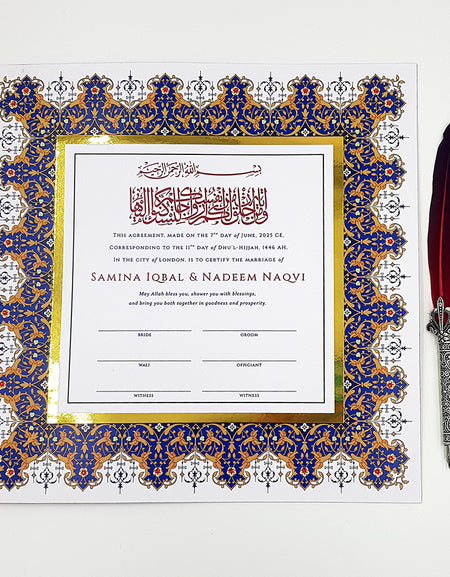 بسم الله الرحمن الرحيم
ومن اياته ان خلق لكم من انفسكم ازواجا لتسكنوا اليها
This agreement, made on the 7th day of June, 2025 CE,
Corresponding to the 11th day of Dhu'l-Hijjah, 1446 AH,
In the city of London, is to certify the marriage of
Samina Iqbal & Nadeem Naqvi
May Allah bless you, shower you with blessings,
and bring you both together in goodness and prosperity.
BRIDE GROOM
WALI OFFICIANT
WITNESS WITNESS